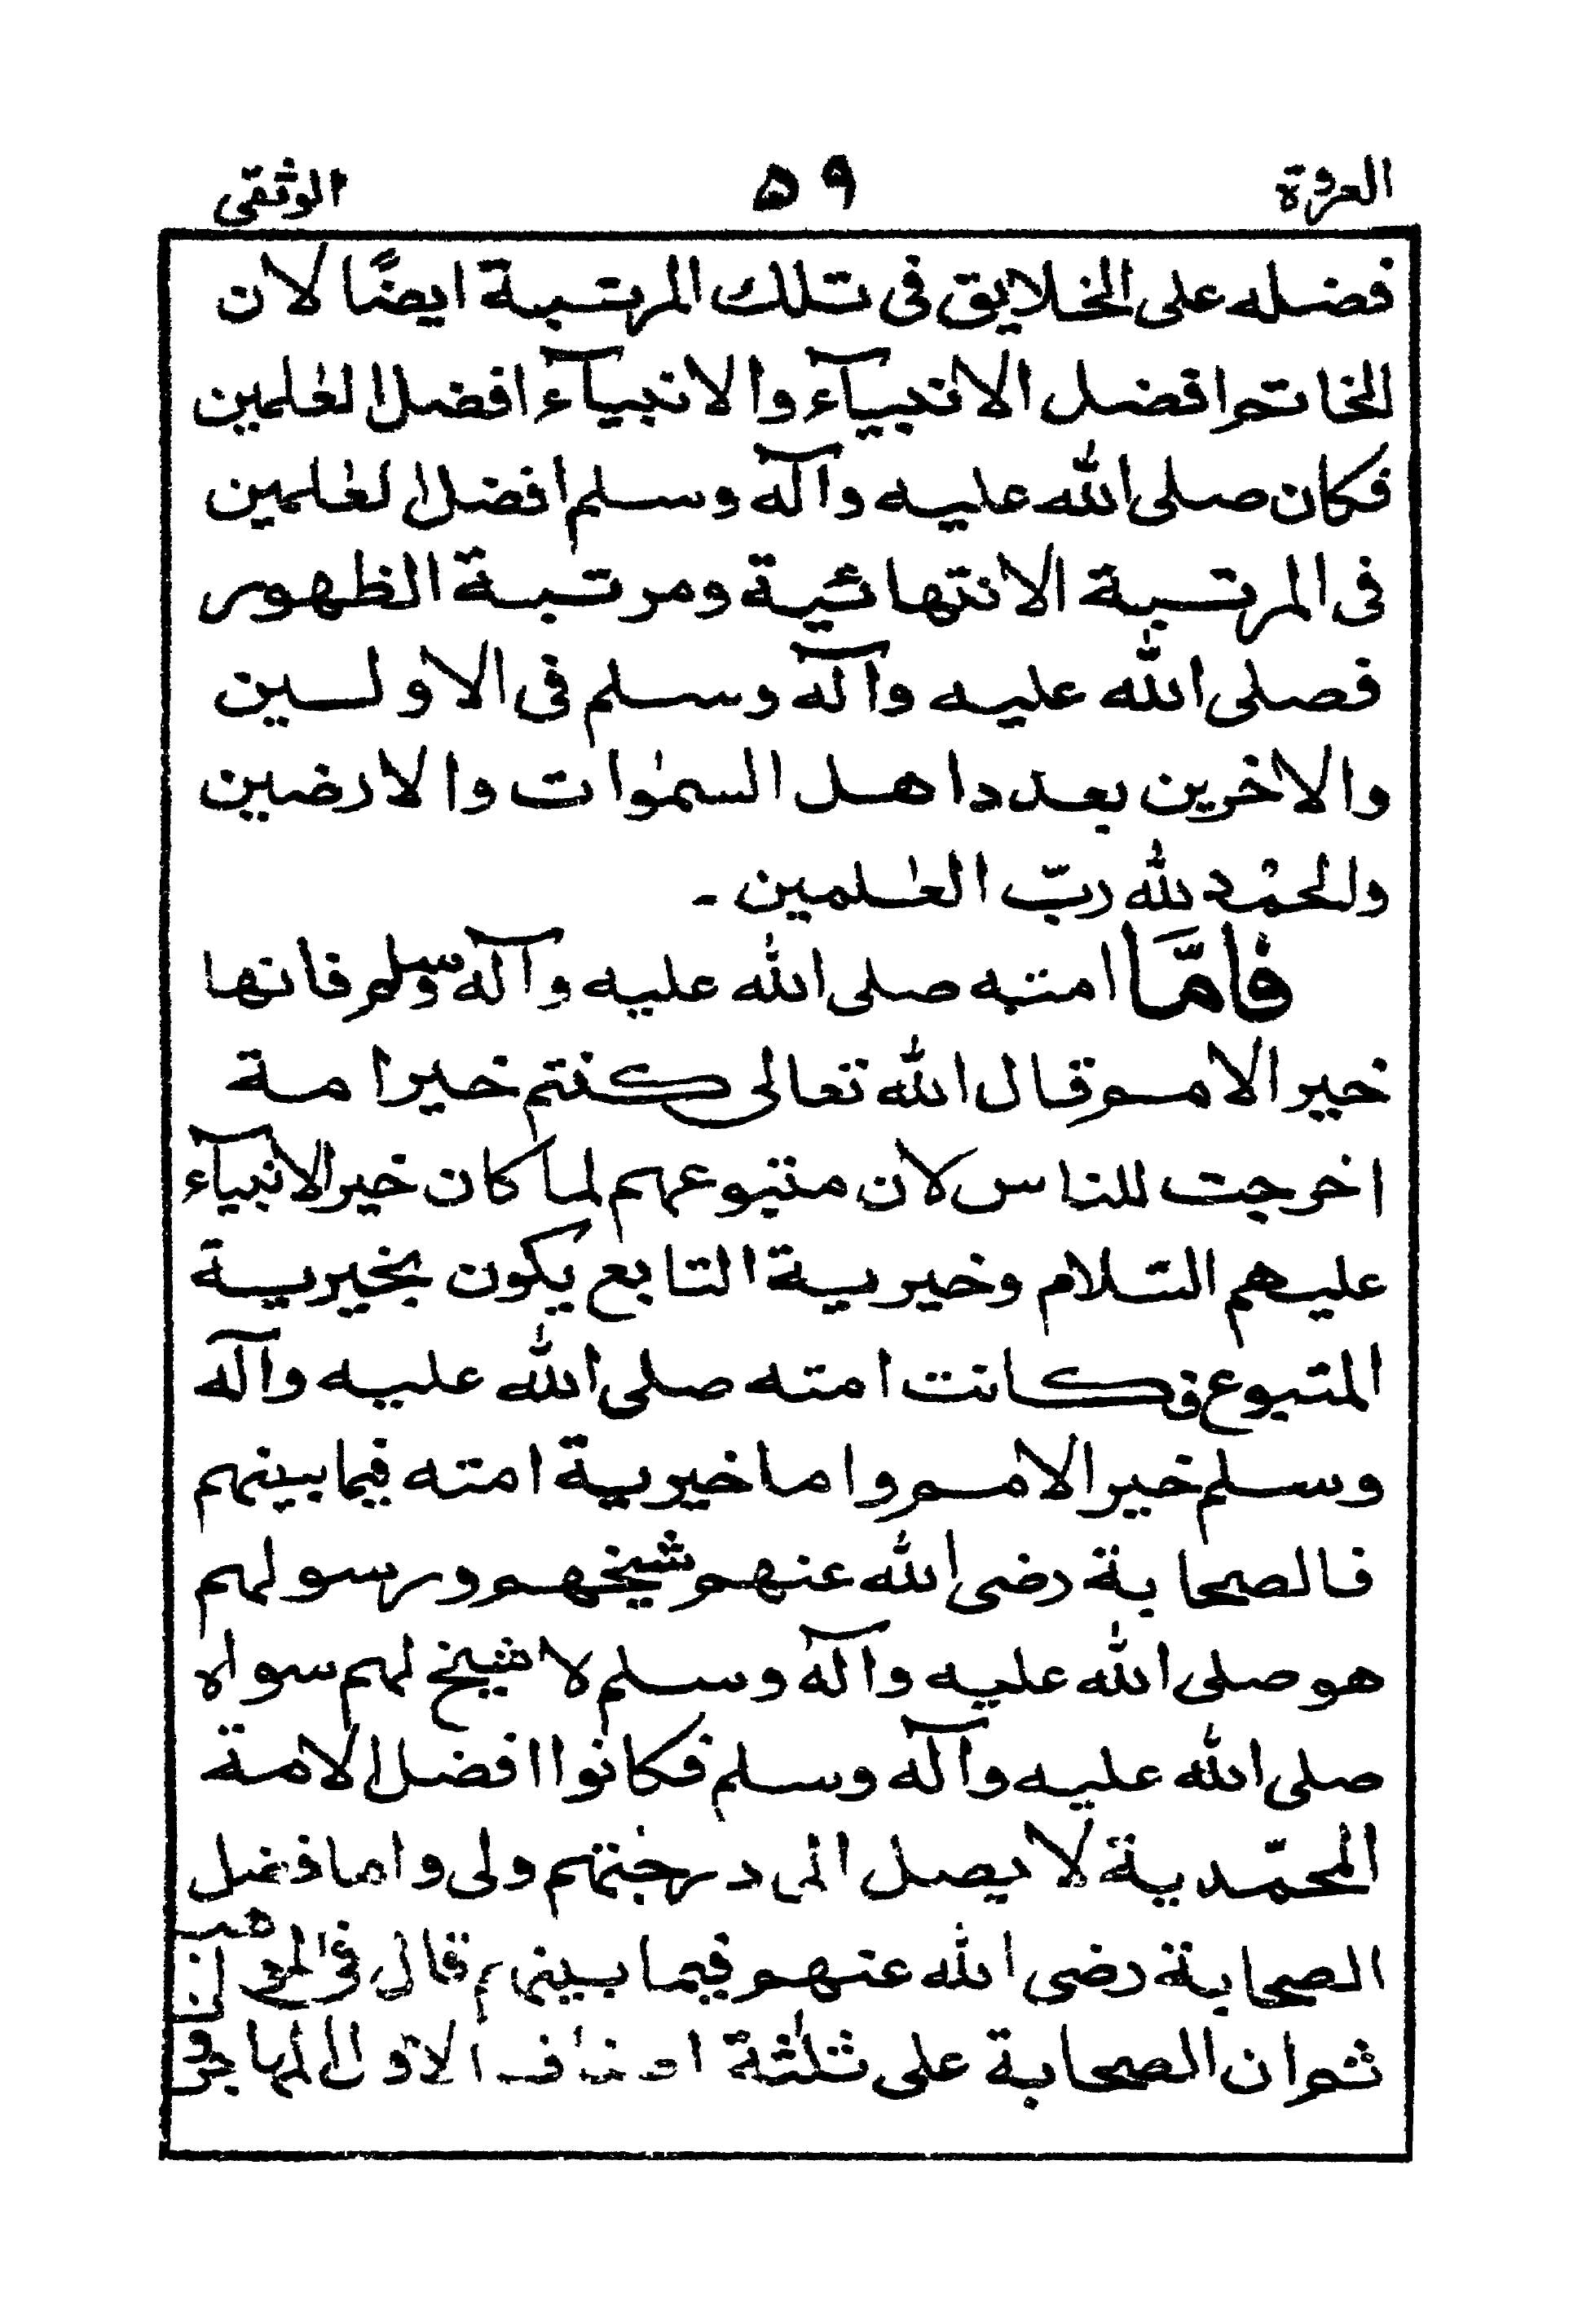 العروة ۵۹ الوثقى
فضله على الخلايق فى تلك المرتبة ايضًا لان
الخاتم افضل الانبيآء والانبيآء افضل العٰلمين
فكان صلى الله عليه وآله وسلم افضل العٰلمين
فى المرتبة الانتهائية ومرتبة الظهور
فصلى الله عليه وآله وسلم فى الاولين
والاخرين بعدد اهل السمٰوات والارضين
والحمْد لله ربّ العٰلمين ـ
فامَّا امته صلى الله عليه وآله وسلم فانها
خير الامم قال الله تعالى كنتم خير امة
اخرجت للناس لان متبوعهم لما كان خير الانبيآء
عليهم السّلام وخيرية التابع يكون بخيرية
المتبوع فكانت امته صلى الله عليه وآله
وسلم خير الامم واما خيرية امته فيما بينهم
فالصحابة رضى الله عنهم شيخهم ورسولهم
هو صلى الله عليه وآله وسلم لا شيخ لهم سواه
صلى الله عليه وآله وسلم فكانوا افضل الامة
المحمّدية لا يصل الى درجتهم ولى واما فضل
الصحابة رضى الله عنهم فيما بينهم قال فى المواهب لدن
ثم ان الصحابة على ثلٰثة اصناف الاول المهاجرو